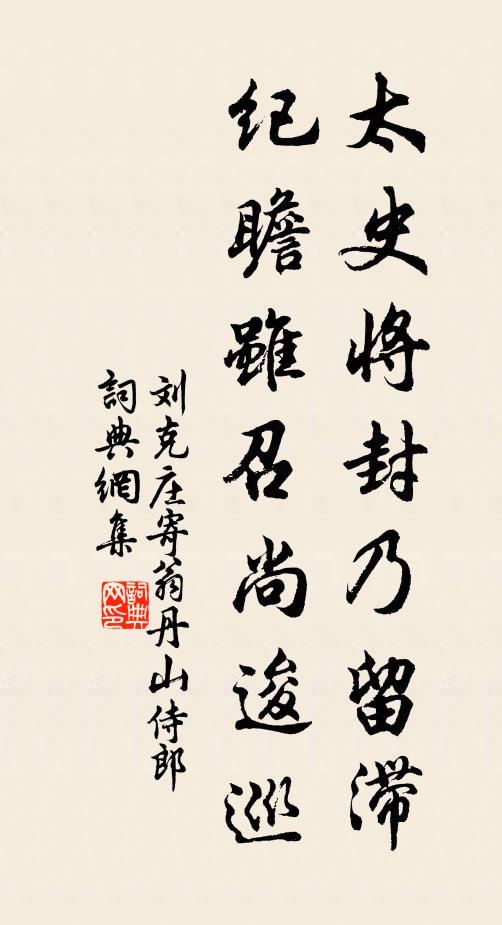 太史将封乃留滞
纪瞻雖召尚逡巡
刘克庄寄翁丹山侍郎
詞典網集
詞典网印